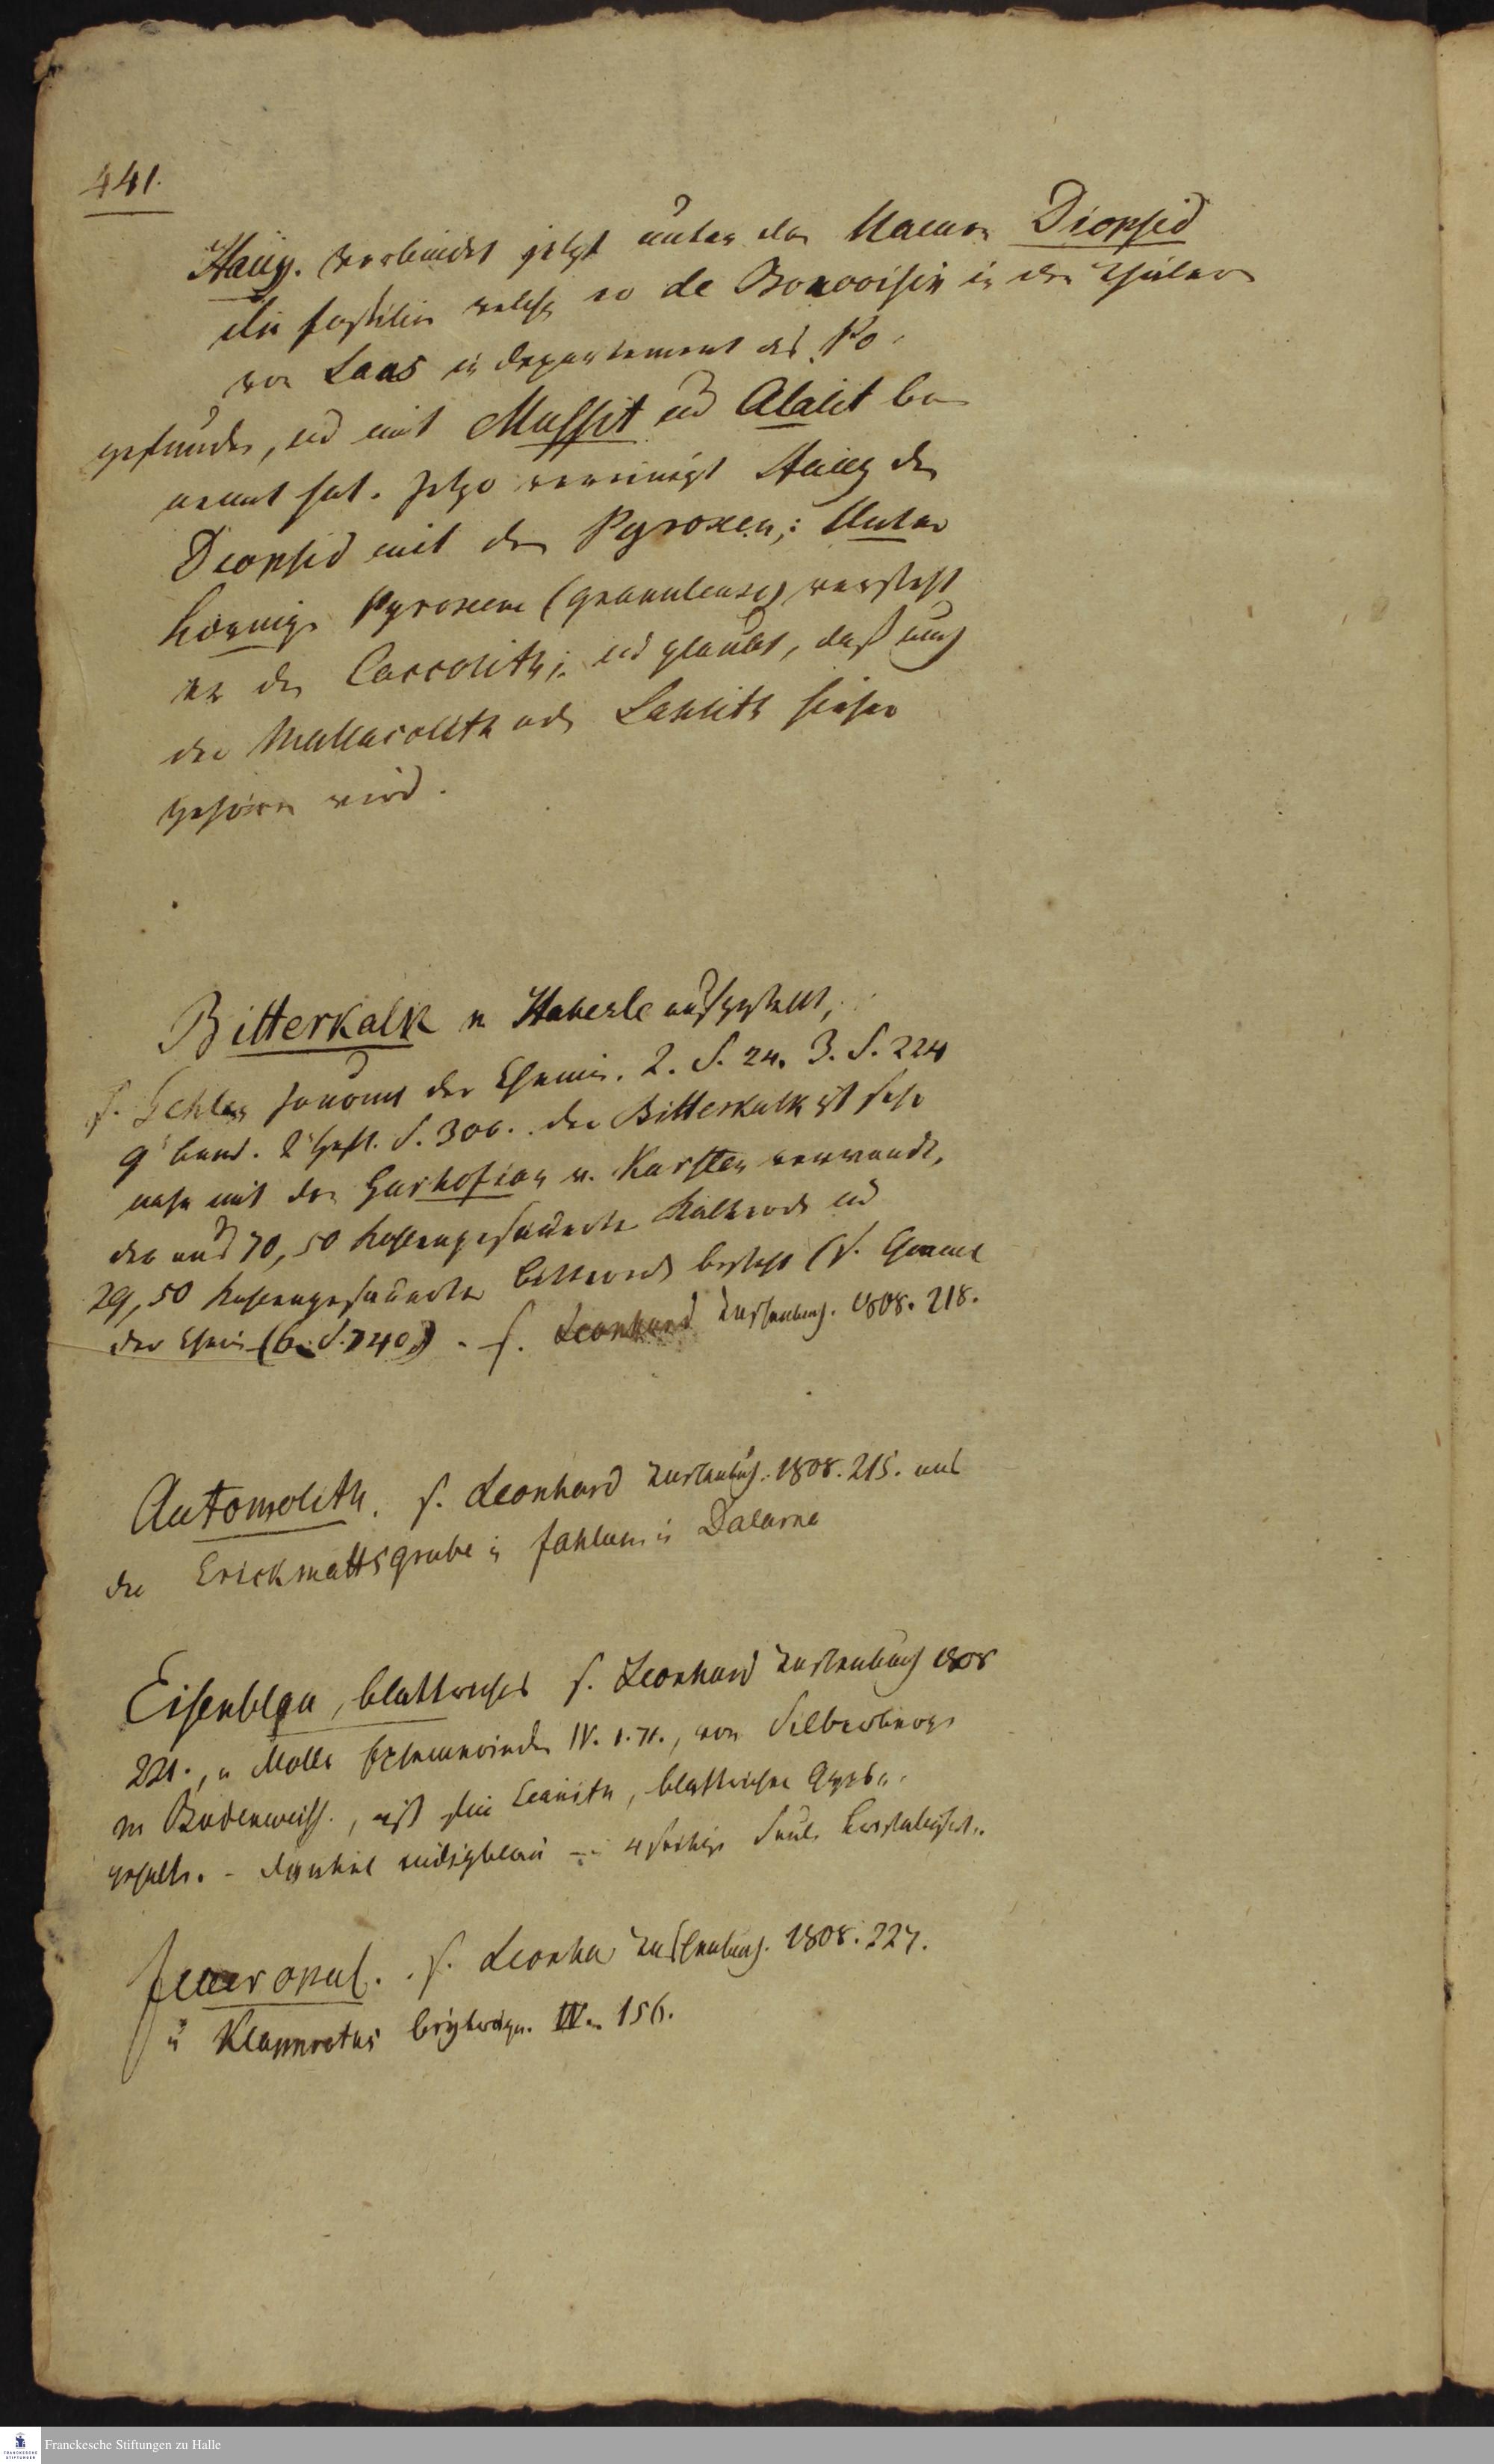 441.
Haüy. verbindet jetzt unter dem Namen Diopsid
die fossilien welche de Bonvoisin in den Thälern
von Lans in departement des Po.
gefunden, und mit Mussit und Alalit be
nannt hat. Jetzo vereinigt Haüy den
Diopsid mit dem Pyroxen; Unter
körnigen Pyroxene (granuleuse) versteht
er den Coccolith; und glaubt, daß auch
der Mallacolith oder Sahlith hieher
gehören wird.
Bitterkalk v. Haberle aufgestellt,
s. Gehlen Journal der Chemie. 2. S. 24. 3. S. 224
9 band. 2 Heft. S. 306. der Bitterkalk ist sehr
nahe mit dem Gurhofian v. Karsten verwandt,
der aus 70,50 kohlengesäuerter Kalkerde und
29,50 kohlengesäuerter bittererde besteht (s.
der Chemie (6. S. 740)) - s. Leonhard Taschenbuch. 1808. 218.
Automolith. s. Leonhard Taschenbuch. 1808. 215. aus
der Erickmattsgrube in Fahlun in Dalarna
Eisenblau, blattriches s. Leonhard Taschenbuch 1808
221., u Molls IV. 1. 71., von Silberberge
in Bodenweiss., ist für Cianith, blattrichen Gyps
gehalten. - dunkel indigblau - 4seitige Säule krystallisirt.
Feueropal. s. Leonha Taschenbuch. 1808. 227.
u Klapproths beyträge. IV. 156.
Franckesche Stiftungen zu Halle